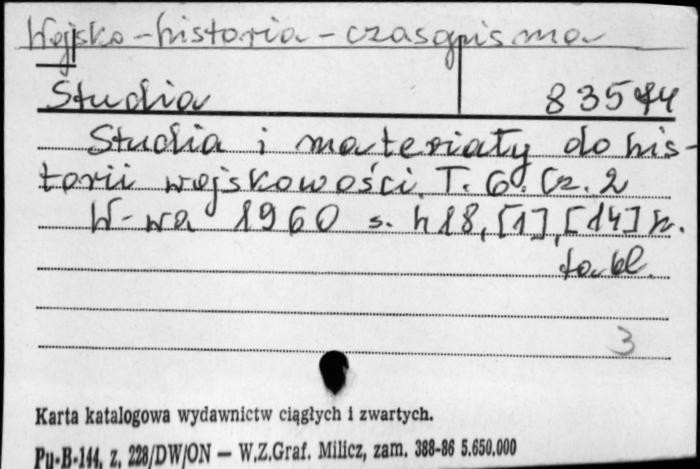 Wojsko – historia – czasopisma
Studia 83544
Studia i materiały do his-
torii wojskowości. T. 6. Cz. 2
W-wa 1960 s. 418, [1], [14] k.
tabl.
3
Karta katalogowa wydawnictw ciągłych i zwartych.
Pu-B-144, z. 228/DW/ON — W.Z.Graf. Milicz, zam. 388-86 5.650.000